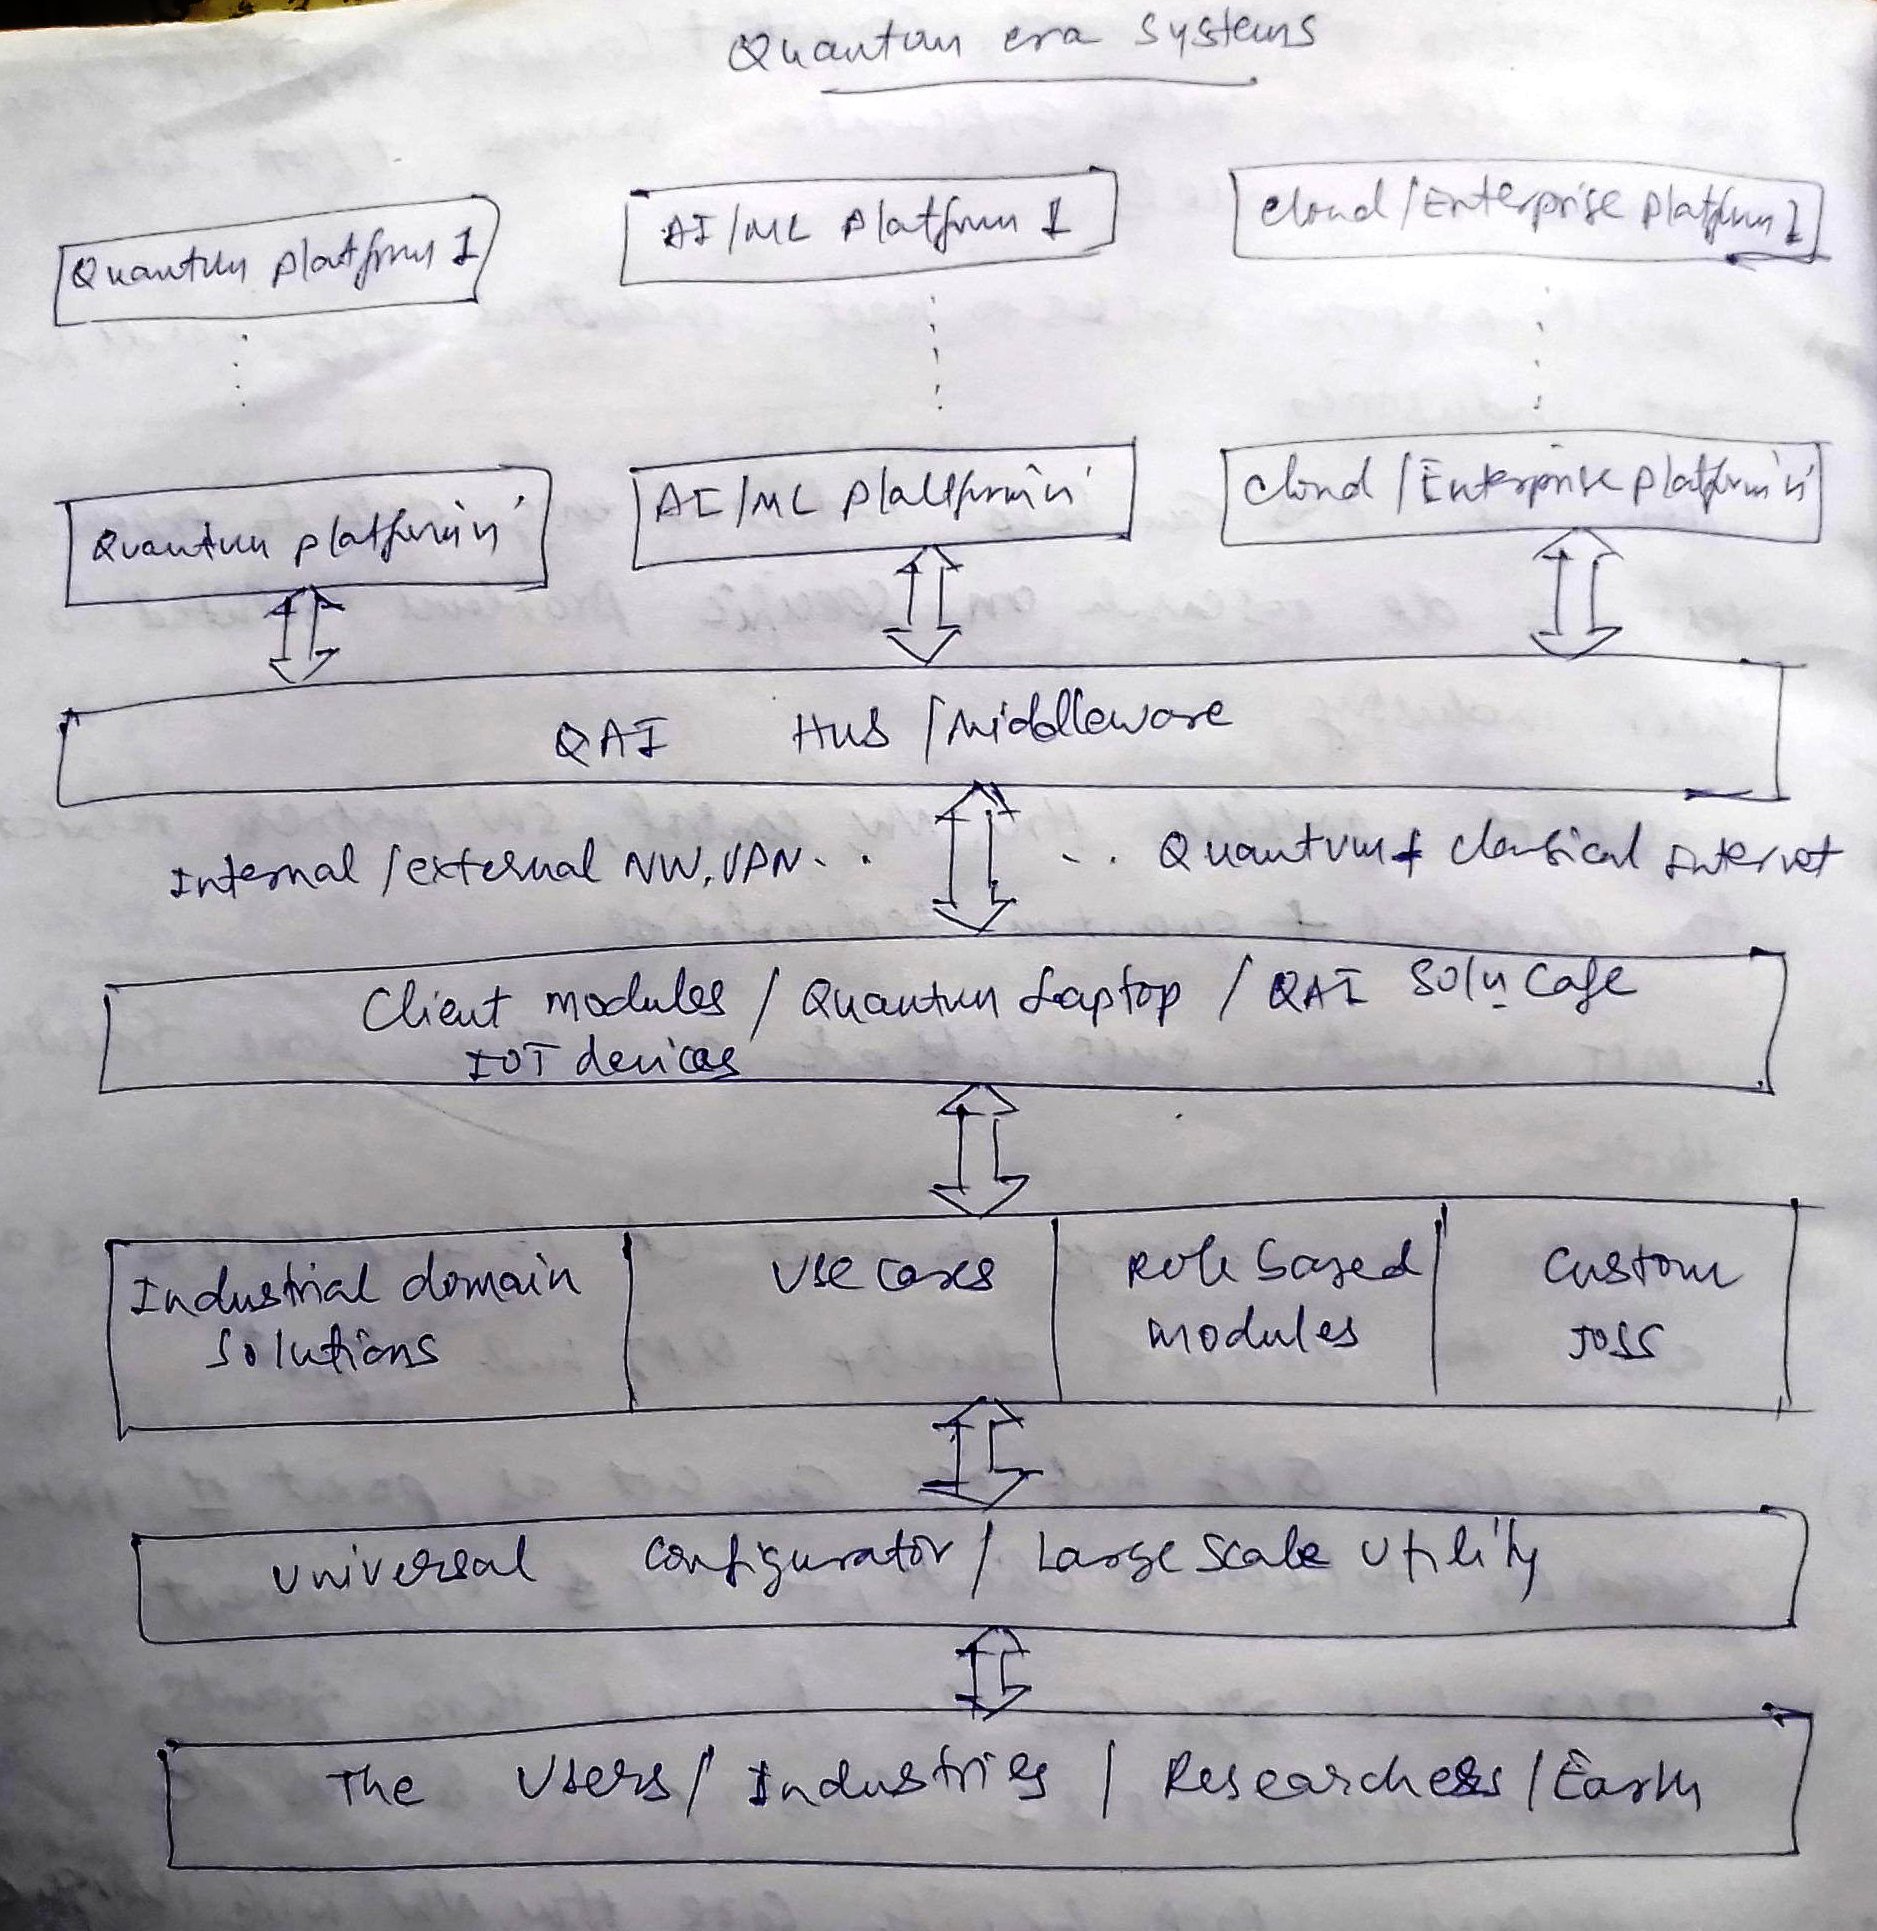 Quantum era Systems
Quantum platform 1
AI/ML platform 1
Cloud/Enterprise platform 1
Quantum platform 'n'
AI/ML platform 'n'
Cloud/Enterprise platform 'n'
QAI HUB/Middleware
Internal/external NW, VPN. . .
. . . Quantum + Classical Internet
Client modules / Quantum Laptop / QAI Soln Cafe
IOT devices
Industrial domain
Solutions
Use cases
Role based
modules
Custom
JOBS
Universal Configurator / Large Scale Utility
The Users / Industries / Researchers / Earth